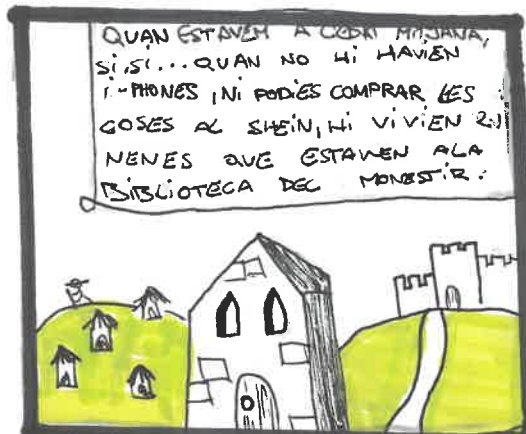 QUAN ESTAVEM A L'EDAT MITJANA,
SI, SI... QUAN NO HI HAVIEN
I-PHONES, NI PODIES COMPRAR LES
COSES AL SHEIN, HI VIVIEN 2
NENES QUE ESTAVEN A LA
BIBLIOTECA DEL MONESTIR.